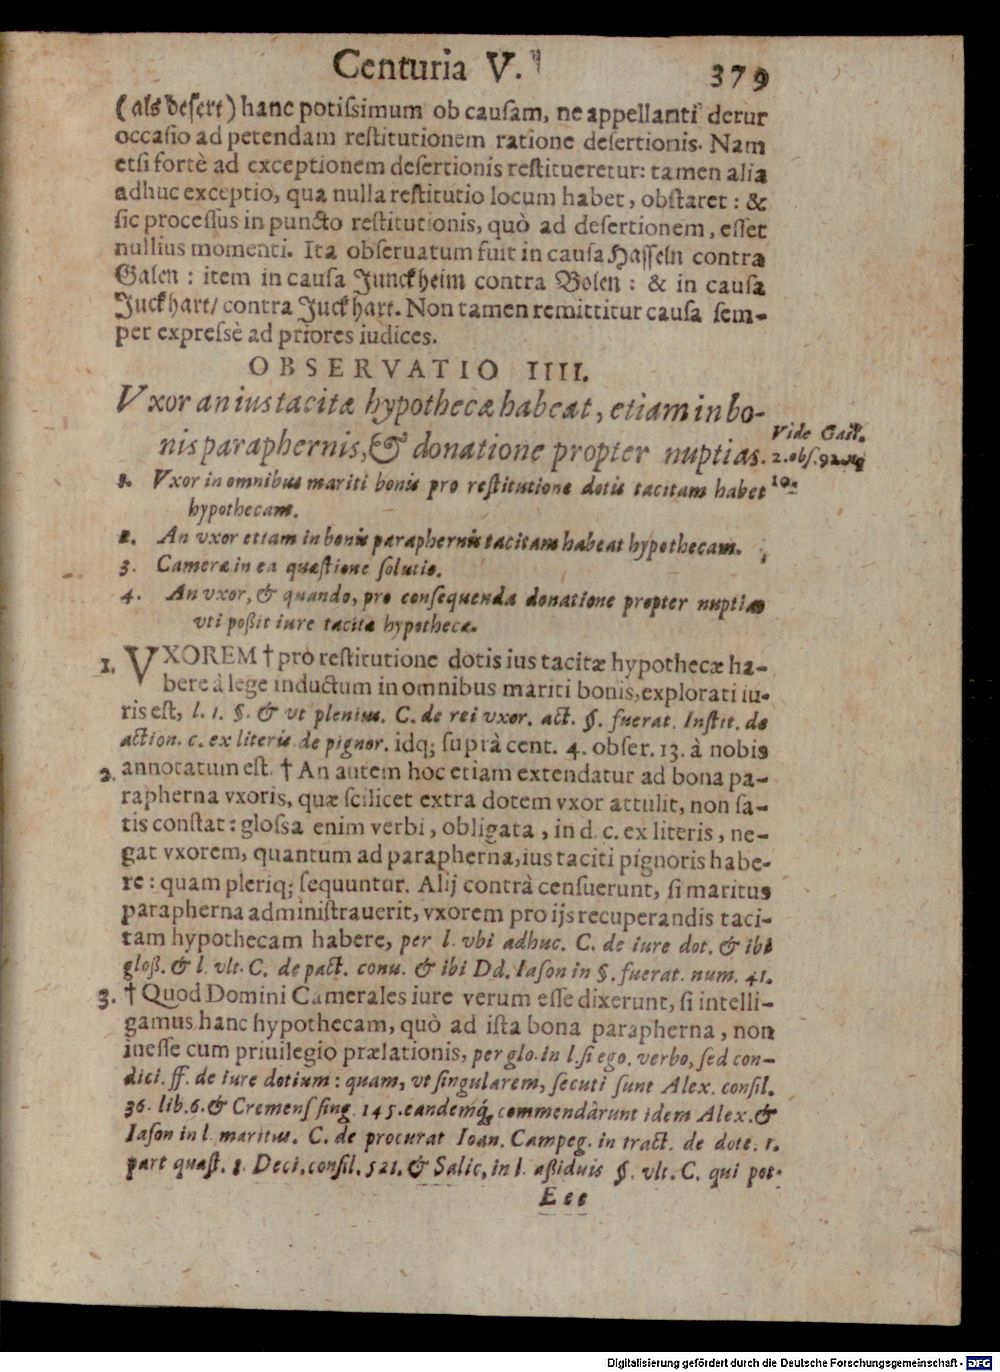 Centuria V.
379
(als desert) hanc potissimum ob causam, ne appellanti detur
occasio ad petendam restitutionem ratione desertionis. Nam
etsi fortè ad exceptionem desertionis restitueretur: tamen alia
adhuc exceptio, qua nulla restitutio locum habet, obstaret: &
sic processus in puncto restitutionis, quò ad desertionem, esset
nullius momenti. Ita obseruatum fuit in causa Hasseln contra
Galen: item in causa Junckheim contra Bolen: & in causa
Juckhart/ contra Juckhart. Non tamen remittitur causa sem-
per expressè ad priores iudices.
OBSERVATIO IIII.
Vxor an ius tacitæ hypothecæ habeat, etiam in bo-
nis paraphernis, & donatione propter nuptias.
Vide Gail.
2. obs. 92. nu
10.
1. Vxor in omnibus mariti bonis pro restitutione dotis tacitam habet
hypothecam.
2. An vxor etiam in bonis paraphernis tacitam habeat hypothecam.
3. Cameræ in ea quæstione solutio.
4. An vxor, & quando, pro consequenda donatione propter nuptias
vti poßit iure tacitæ hypothecæ.
1. VXOREM † pro restitutione dotis ius tacitæ hypothecæ ha-
bere à lege inductum in omnibus mariti bonis, explorati iu-
ris est, l. 1. §. & vt plenius. C. de rei vxor. act. §. fuerat. Instit. de
action. c. ex literis de pignor. idq; suprà cent. 4. obser. 13. à nobis
2. annotatum est. † An autem hoc etiam extendatur ad bona pa-
rapherna vxoris, quæ scilicet extra dotem vxor attulit, non sa-
tis constat: glossa enim verbi, obligata, in d. c. ex literis, ne-
gat vxorem, quantum ad parapherna, ius taciti pignoris habe-
re: quam pleriq; sequuntur. Alij contrà censuerunt, si maritus
parapherna administrauerit, vxorem pro ijs recuperandis taci-
tam hypothecam habere, per l. vbi adhuc. C. de iure dot. & ibi
gloß. & l. vlt. C. de pact. conu. & ibi Dd. Iason in §. fuerat. num. 41.
3. † Quod Domini Camerales iure verum esse dixerunt, si intelli-
gamus hanc hypothecam, quò ad ista bona parapherna, non
inesse cum priuilegio prælationis, per glo. in l. si ego. verbo, sed con-
dici. ff. de iure dotium: quam, vt singularem, secuti sunt Alex. consil.
36. lib. 6. & Cremens sing. 145. eandemq́; commendârunt idem Alex. &
Iason in l. maritus. C. de procurat Ioan. Campeg. in tract. de dote. 1.
part quæst. 8. Deci. consil. 521. & Salic, in l. aßiduis §. vlt. C. qui pot-
Eee
Digitalisierung gefördert durch die Deutsche Forschungsgemeinschaft - DFG